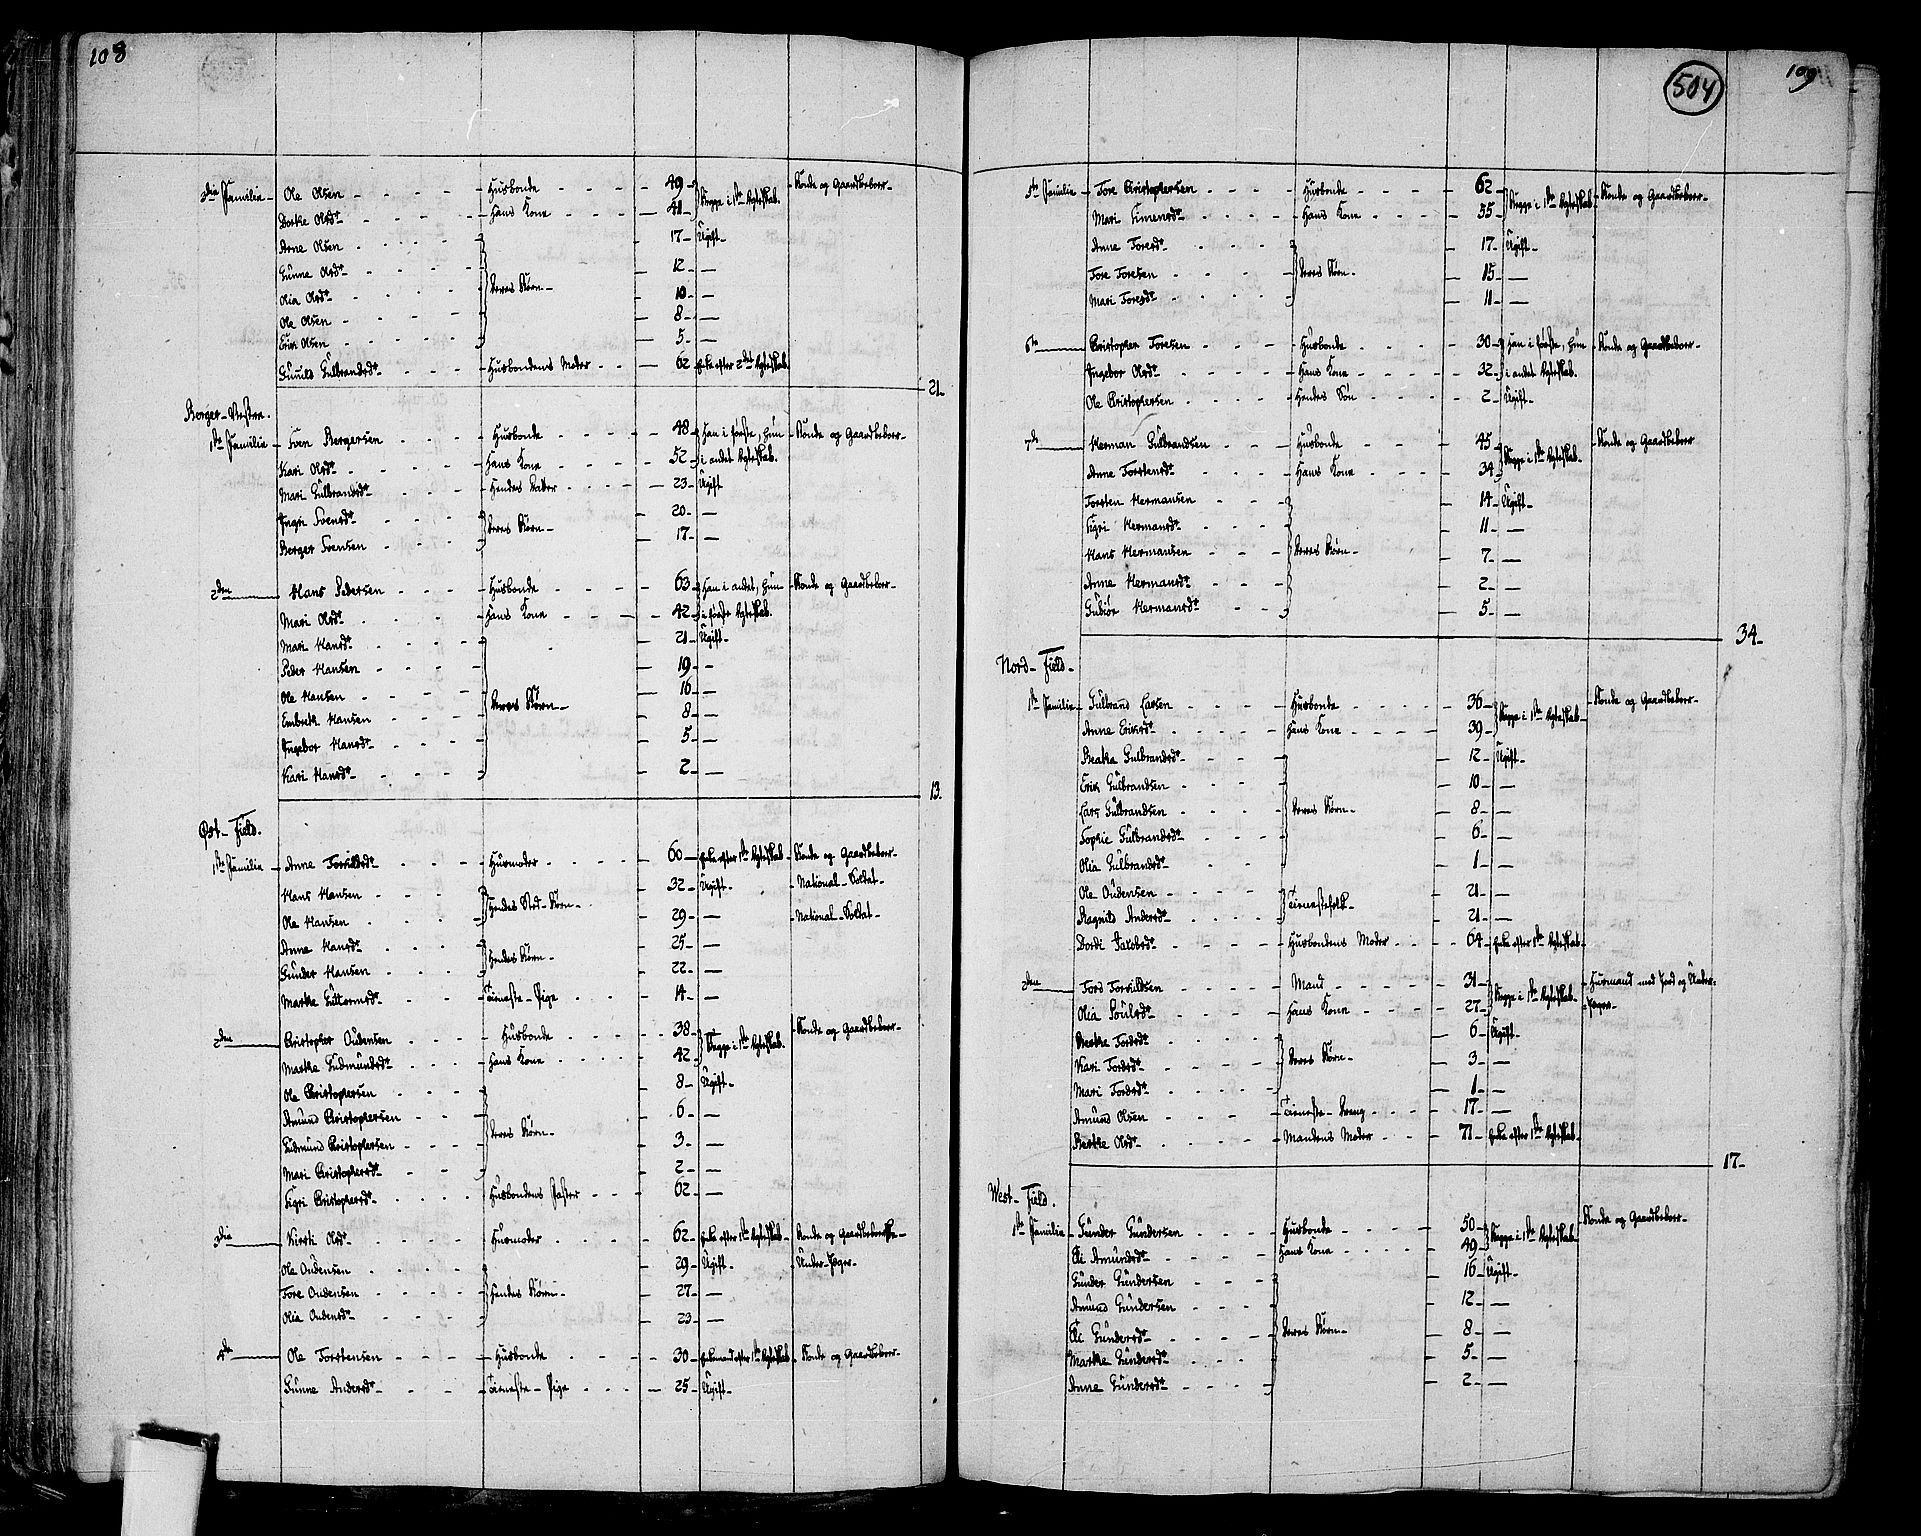 108
3die Familie - Ole Olsen - Husbonde - 49 - Begge i 1ste Ægteskab. - Bonde og Gaardbeboer
Dorte Olsdr - Hans Kone - 41
Arne Olsen - 17 - Ugift
Gunne Olsdr - 12 -
Olia Olsdr - Deres Børn - 10 -
Ole Olsen - 8 -
Erik Olsen - 5 -
Gunild Gulbrandsdr - Husbondens Moder - 62 - Enke efter 2det Ægteskab.
21.
Berger - Vestre.
1ste Familie - Sven Bergersen - Husbonde - 48 - Han i første, hun - Bonde og Gaardbeboer
Kari Olsdr - Hans Kone - 52 - i andet Ægteskab.
Mari Gulbrandsdr - Hendes Datter - 23 - Ugift
Ingri Svensdr - Deres Børn - 20 -
Berger Svensen - 17 -
2den - Hans Pedersen - Husbonde - 63 - Han i andet, hun - Bonde og Gaardbeboer
Mari Olsdr - Hans Kone - 42 - i første Ægteskab.
Mari Hansdr - 21 - Ugift
Peder Hansen - 19 -
Ole Hansen - Deres Børn - 16 -
Embrek Hansen - 8 -
Ingebor Hansdr - 5 -
Kari Hansdr - 2 -
13.
Øst - Field.
1ste Familie - Anne Torkildsdr - Husmoder - 60 - Enke efter 1ste Ægteskab - Bonde og Gaardbeboer
Hans Hansen - Hendes Sted-Børn - 32 - Ugift - National-Soldat
Ole Hansen - 29 - National-Soldat
Anne Hansdr - Hendes Børn - 25 -
Gunder Hansen - 22 -
Marthe Guttormsdr - Tieneste-Pige - 14 -
2den - Christopher Oudensen - Husbonde - 38 - Begge i 1ste Ægteskab. - Bonde og Gaardbeboer
Marthe Gudmundsdr - Hans Kone - 42
Ole Christophersen - 8 - Ugift
Amund Christophersen - Deres Børn - 6 -
Gudmund Christophersen - 3 -
Mari Christophersdr - 2 -
Sigri Christophersdr - Husbondens Faster - 62 -
3die - Kirsti Olsdr - Husmoder - 62 - Enke efter 1ste Ægteskab - Bonde og Gaardbeboerske
Ole Oudensen - 29 - Ugift - Under-Jæger
Tore Oudensen - Hendes Børn - 27 -
Olia Oudensdr - 23 -
4de - Ole Torstensen - Husbonde - 30 - Enkemand efter 1ste Ægteskab - Bonde og Gaardbeboer
Gunne Andersdr - Tieneste-Pige - 25 - Ugift
504
109
5te Familie - Tore Christophersen - Husbonde - 62 - Begge i 1ste Ægteskab - Bonde og Gaardbeboer
Mari Simensdr - Hans Kone - 55
Anne Toresdr - 17 - Ugift
Tore Toresen - Deres Børn - 15 -
Mari Toresdr - 11 -
6te - Christopher Toresen - Husbonde - 30 - Han i første, hun - Bonde og Gaardbeboer
Ingebor Olsdr - Hans Kone - 32 - i andet Ægteskab.
Ole Christophersen - Hendes Søn - 2 - Ugift
7de - Herman Gulbrandsen - Husbonde - 45 - Begge i 1ste Ægteskab - Bonde og Gaardbeboer
Anne Torstensdr - Hans Kone - 34
Torsten Hermansen - 14 - Ugift
Sigri Hermansdr - 11 -
Hans Hermansen - Deres Børn - 7 -
Anne Hermansdr - 2 -
Gubiør Hermansdr - 5 -
34.
Nord - Field
1ste Familie - Gulbrand Larsen - Husbonde - 36 - Begge i 1ste Ægteskab - Bonde og Gaardbeboer
Anne Eriksdr - Hans Kone - 39
Beathe Gulbrandsdr - 12 - Ugift
Erik Gulbrandsen - 10 -
Lars Gulbrandsen - Deres Børn - 8 -
Sophie Gulbrandsdr - 6 -
Olia Gulbrandsdr - 1 -
Ole Oudensen - Tienestefolk - 21 -
Ragnild Andersdr - 21 -
Dordi Jacobsdr - Husbondens Moder - 64 - Enke efter 1ste Ægteskab
2den - Tord Torkildsen - Mand - 31 - Begge i 1ste Ægteskab - Huusmand med Jord og Under-
Olia Poulsdr - Hans Kone - 27 - Jæger
Berthe Tordsdr - 6 - Ugift
Kari Tordsdr - Deres Børn - 3 -
Mari Tordsdr - 1 -
Amund Olsen - Tieneste-Dreng - 17 -
Berthe Olsdr - Mandens Moder - 71 - Enke efter 1ste Ægteskab
17.
West - Field.
1ste Familie - Gunder Gundersen - Husbonde - 50 - Begge i 1ste Ægteskab - Bonde og Gaardbeboer
Eli Amundsdr - Hans Kone - 49
Gunder Gundersen - 16 - Ugift
Amund Gundersen - 12 -
Eli Gundersdr - Deres Børn - 8 -
Marthe Gundersdr - 5 -
Anne Gundersdr - 2 -